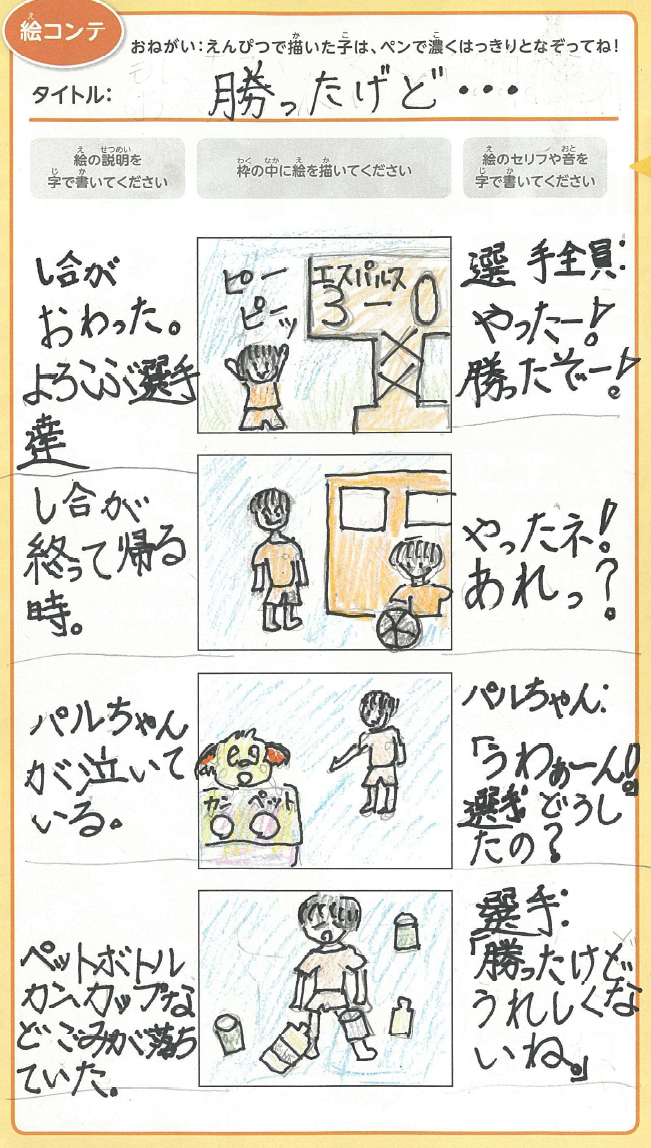 絵コンテ
おねがい：えんぴつで描いた子は、ペンで濃くはっきりとなぞってね！
タイトル：
勝ったけど・・・
絵の説明を
字で書いてください
枠の中に絵を描いてください
絵のセリフや音を
字で書いてください
し合が
おわった。
よろこぶ選手
達
ピー
ピーッ
エスパルス
3－0
選手全員：
やったー！
勝ったぞー！
し合が
終って帰る
時。
やったネ！
あれっ？
パルちゃん
が泣いて
いる。
カン ペット
パルちゃん：
「うわぁーん！」
選手：どうし
たの？
ペットボトル
カン、カップな
どごみが落ち
ていた。
選手：
「勝ったけど
うれしくな
いね。」